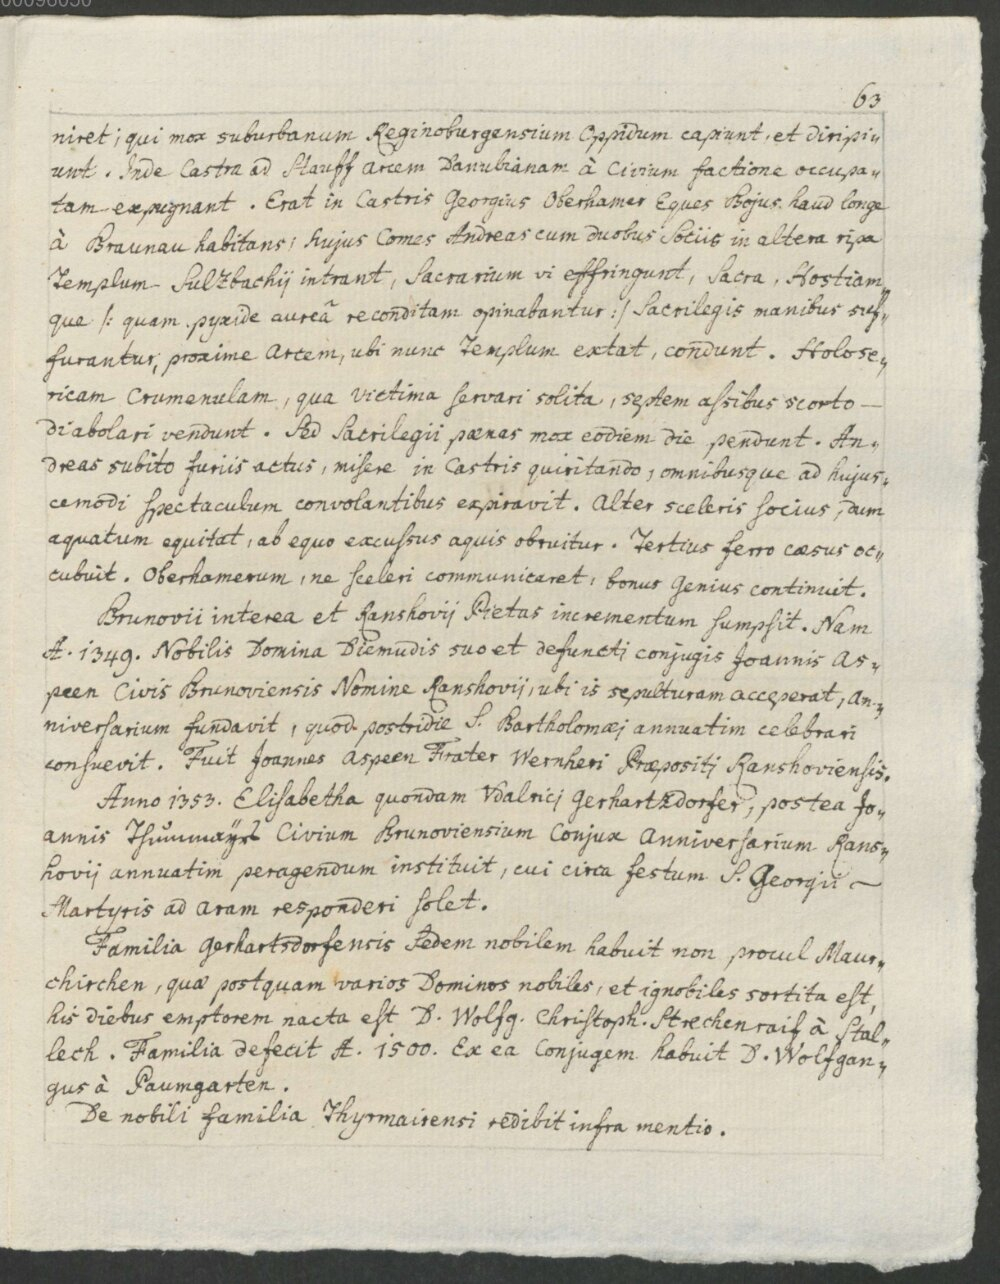 00096030
63
niret; qui mox suburbanum Reginoburgensium Oppidum capiunt, et diripi„
unt. Inde Castra ad Stauff arcem Danubianam à Civium factione occupa„
tam expugnant. Erat in Castris Georgius Oberhamer Eques Bojus haud longe
à Braunau habitans; hujus Comes Andreas cum duobus Sociis in altera ripa
Templum Sulzbachij intrant, Sacrarium vi effringunt, Sacra, Hostiam„
que /: quam pyxide aureâ reconditam opinabantur :/ Sacrilegis manibus suf„
furantur, proxime Arcem, ubi nunc Templum extat, condunt. Holose„
ricam Crumenulam, qua Victima servari solita, septem assibus scorto —
diabolari vendunt. Sed Sacrilegii pænas mox eodiem die pendunt. An„
dreas subito furiis actus, misere in Castris quiritando, omnibusque ad hujus„
cemodi spectaculum convolantibus expiravit. Alter sceleris socius, dum
aquatum equitat, ab equo excussus aquis obruitur. Tertius ferro cæsus oc„
cubuit. Oberhamerum, ne sceleri communicaret, bonus Genius continuit.
Brunovii interea et Ranshovij Pietas incrementum sumpsit. Nam
A. 1349. Nobilis Domina Diemudis suo et defuncti conjugis Joannis As„
peen Civis Brunoviensis Nomine Ranshovij, ubi is sepulturam acceperat, an„
niversarium fundavit, quod postridie S. Bartholomæj annuatim celebrari
consuevit. Fuit Joannes Aspeen Frater Wernheri Præpositi Ranshoviensis.
Anno 1353. Elisabetha quondam Vdalricj Gerhartzdorfer, postea Jo„
annis Civium Brunoviensium Conjux Anniversarium Rans„
hovij annuatim peragendum instituit, cui circa festum S. Georgii ~
Martyris ad aram responderi solet.
Familia Gerhartsdorfensis Sedem nobilem habuit non procul Maur„
chirchen, quæ postquam varios Dominos nobiles, et ignobiles sortita est,
his diebus emptorem nacta est D. Wolfg. Christoph. Strechenraif à Stal„
lech. Familia defecit A. 1500. Ex ea Conjugem habuit D. Wolfgan„
gus à Paumgarten.
De nobili familia Thyrmairensi redibit infra mentio.